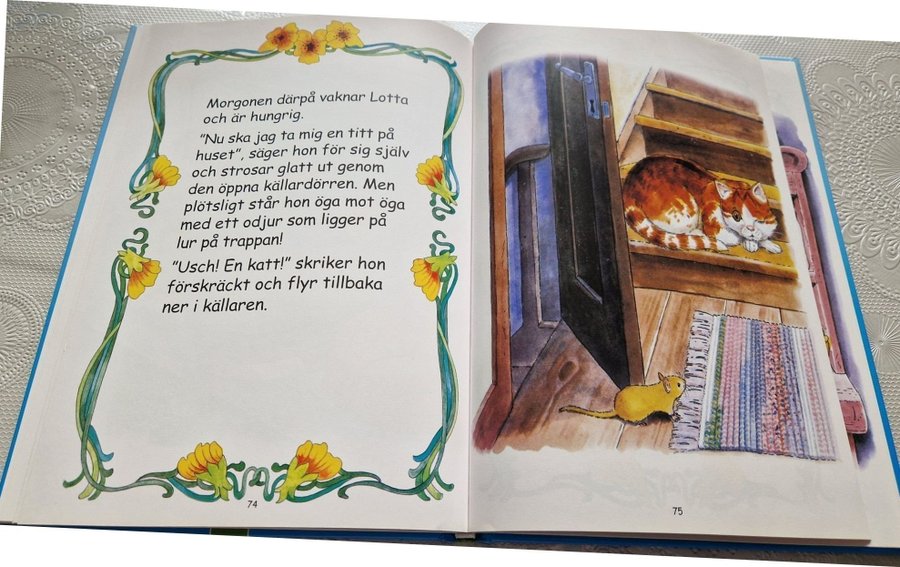 Morgonen därpå vaknar Lotta
och är hungrig.
"Nu ska jag ta mig en titt på
huset", säger hon för sig själv
och strosar glatt ut genom
den öppna källardörren. Men
plötsligt står hon öga mot öga
med ett odjur som ligger på
lur på trappan!
"Usch! En katt!" skriker hon
förskräckt och flyr tillbaka
ner i källaren.
74
75